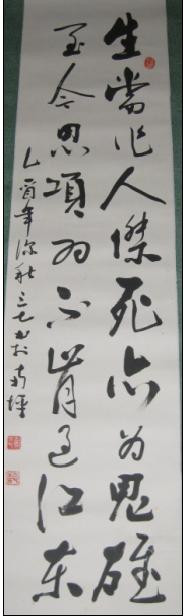 生當作人傑死亦为鬼雄
至今思項羽不肯过江东
乙酉年深秋书於